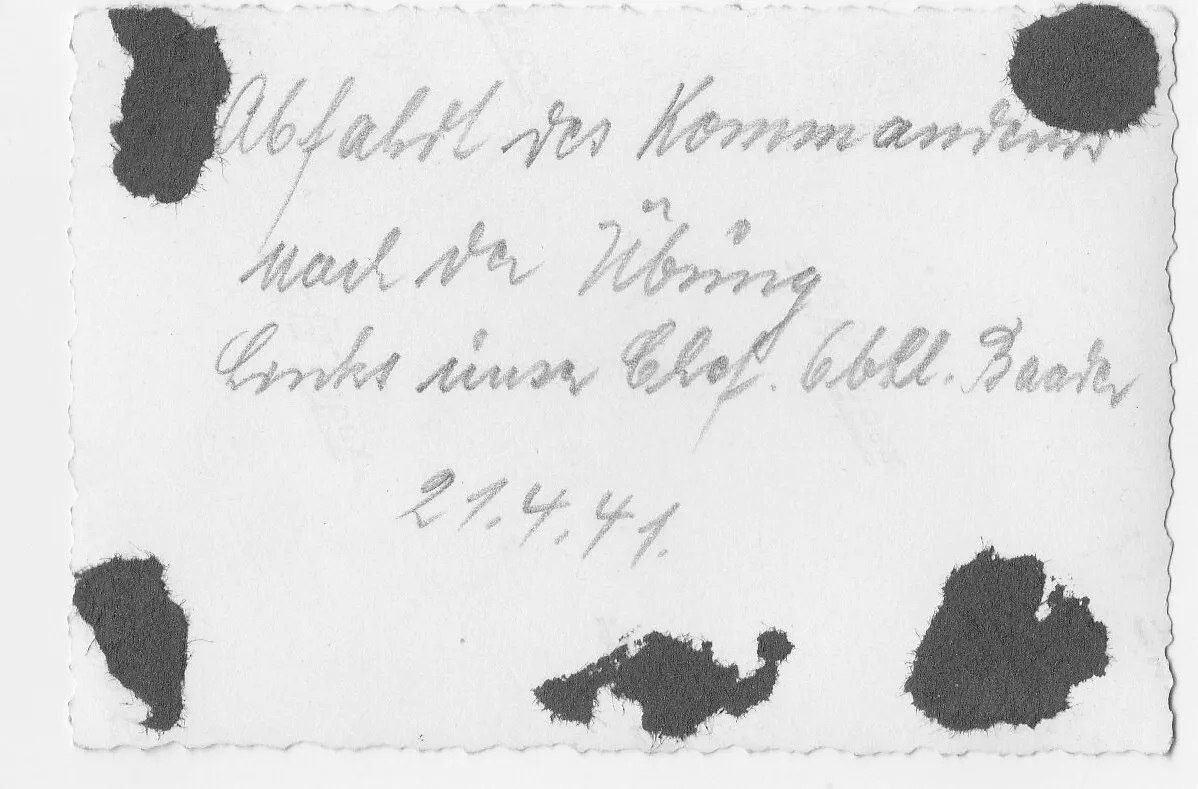 Abfahrt des Kommandeurs
nach der Übung
Links unser Chef. Obltl. Baader
21.4.41.